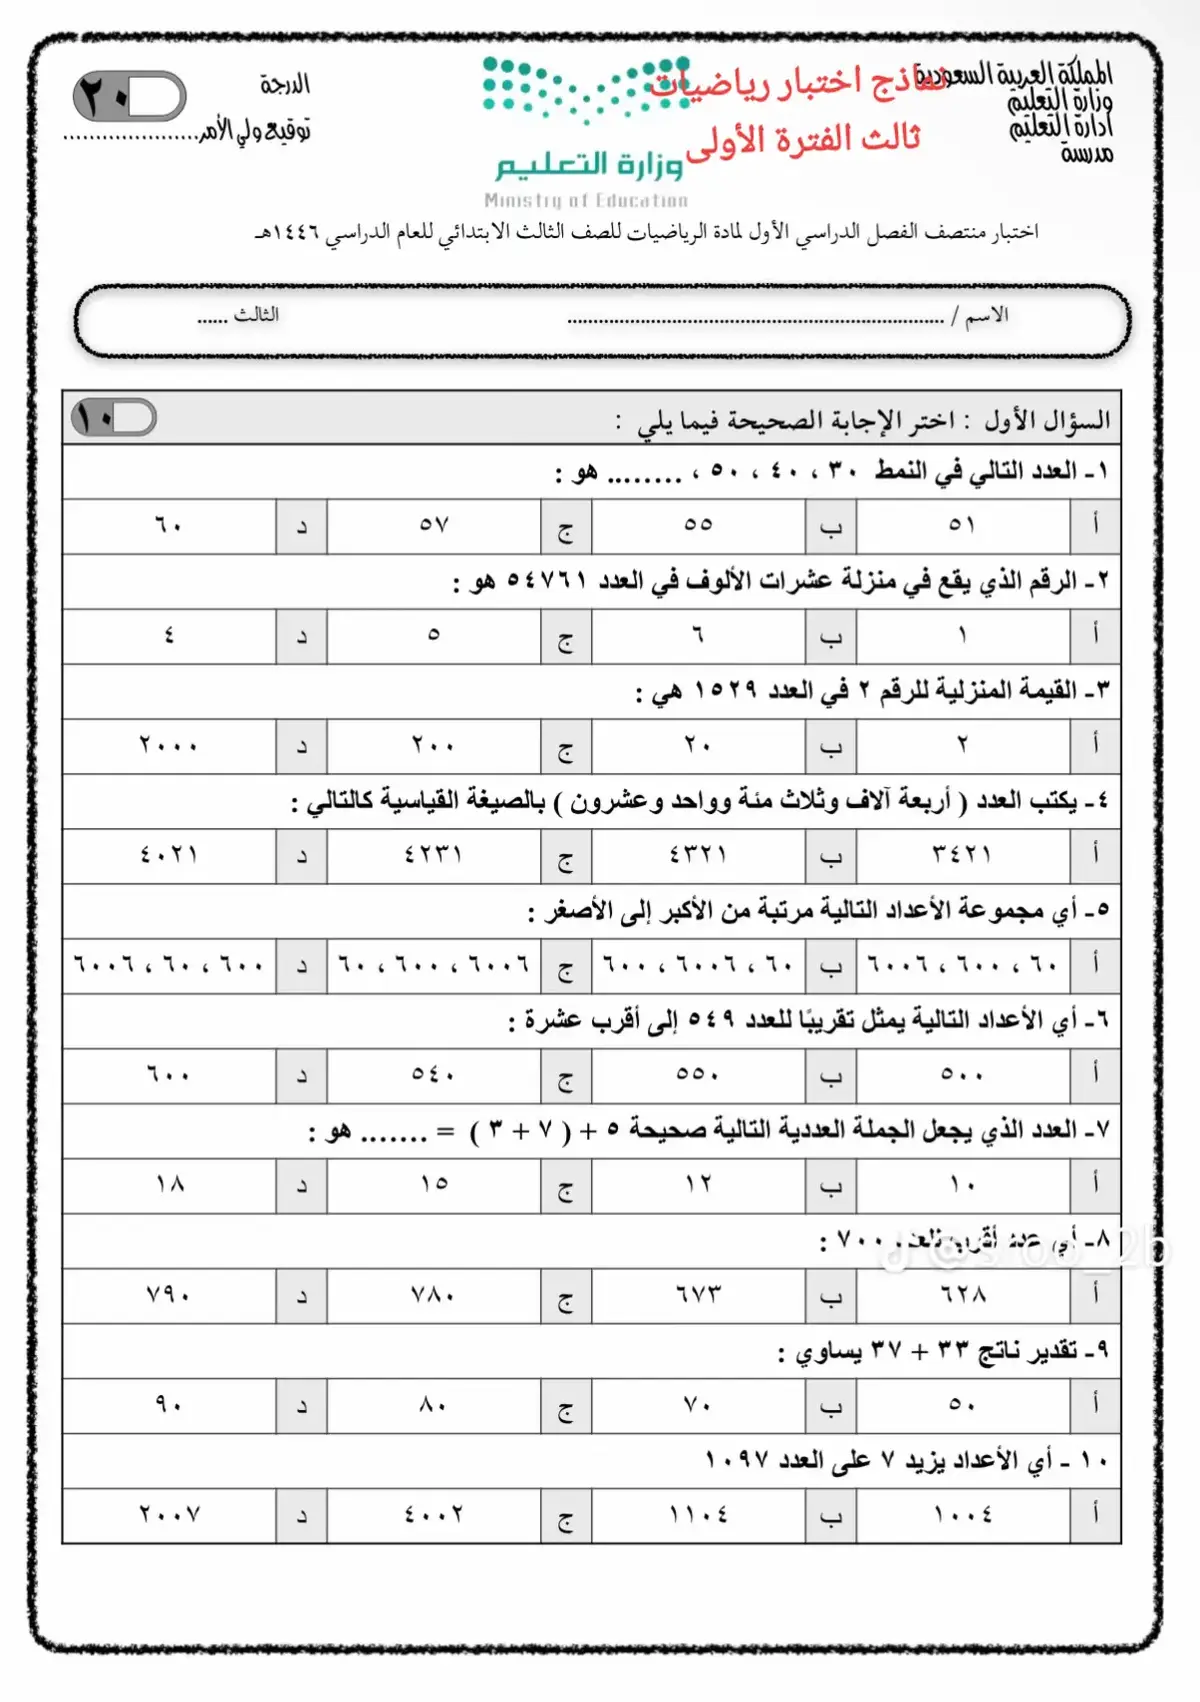 المملكة العربية السعودية
وزارة التعليم
ادارة التعليم
مدرسة
نماذج اختبار رياضيات
ثالث الفترة الأولى
وزارة التعليم
Ministry of Education
الدرجة
٢٠
توقيع ولي الأمر.....................
اختبار منتصف الفصل الدراسي الأول لمادة الرياضيات للصف الثالث الابتدائي للعام الدراسي ١٤٤٦هـ
الاسم / ........................................................................ الثالث ......
السؤال الأول : اختر الإجابة الصحيحة فيما يلي : ١٠
١- العدد التالي في النمط ٣٠ ، ٤٠ ، ٥٠ ، ........ هو :
أ ٥١ ب ٥٥ ج ٥٧ د ٦٠
٢- الرقم الذي يقع في منزلة عشرات الألوف في العدد ٥٤٧٦١ هو :
أ ١ ب ٦ ج ٥ د ٤
٣- القيمة المنزلية للرقم ٢ في العدد ١٥٢٩ هي :
أ ٢ ب ٢٠ ج ٢٠٠ د ٢٠٠٠
٤- يكتب العدد ( أربعة آلاف وثلاث مئة وواحد وعشرون ) بالصيغة القياسية كالتالي :
أ ٣٤٢١ ب ٤٣٢١ ج ٤٢٣١ د ٤٠٢١
٥- أي مجموعة الأعداد التالية مرتبة من الأكبر إلى الأصغر :
أ ٦٠ ، ٦٠٠ ، ٦٠٠٦ ب ٦٠ ، ٦٠٠٦ ، ٦٠٠ ج ٦٠٠٦ ، ٦٠٠ ، ٦٠ د ٦٠٠ ، ٦٠ ، ٦٠٠٦
٦- أي الأعداد التالية يمثل تقريبًا للعدد ٥٤٩ إلى أقرب عشرة :
أ ٥٠٠ ب ٥٥٠ ج ٥٤٠ د ٦٠٠
٧- العدد الذي يجعل الجملة العددية التالية صحيحة ٥ + ( ٧ + ٣ ) = ....... هو :
أ ١٠ ب ١٢ ج ١٥ د ١٨
٨- أي عدد أقرب للعدد ٧٠٠ :
أ ٦٢٨ ب ٦٧٣ ج ٧٨٠ د ٧٩٠
٩- تقدير ناتج ٣٣ + ٣٧ يساوي :
أ ٥٠ ب ٧٠ ج ٨٠ د ٩٠
١٠ - أي الأعداد يزيد ٧ على العدد ١٠٩٧
أ ١٠٠٤ ب ١١٠٤ ج ٤٠٠٢ د ٢٠٠٧